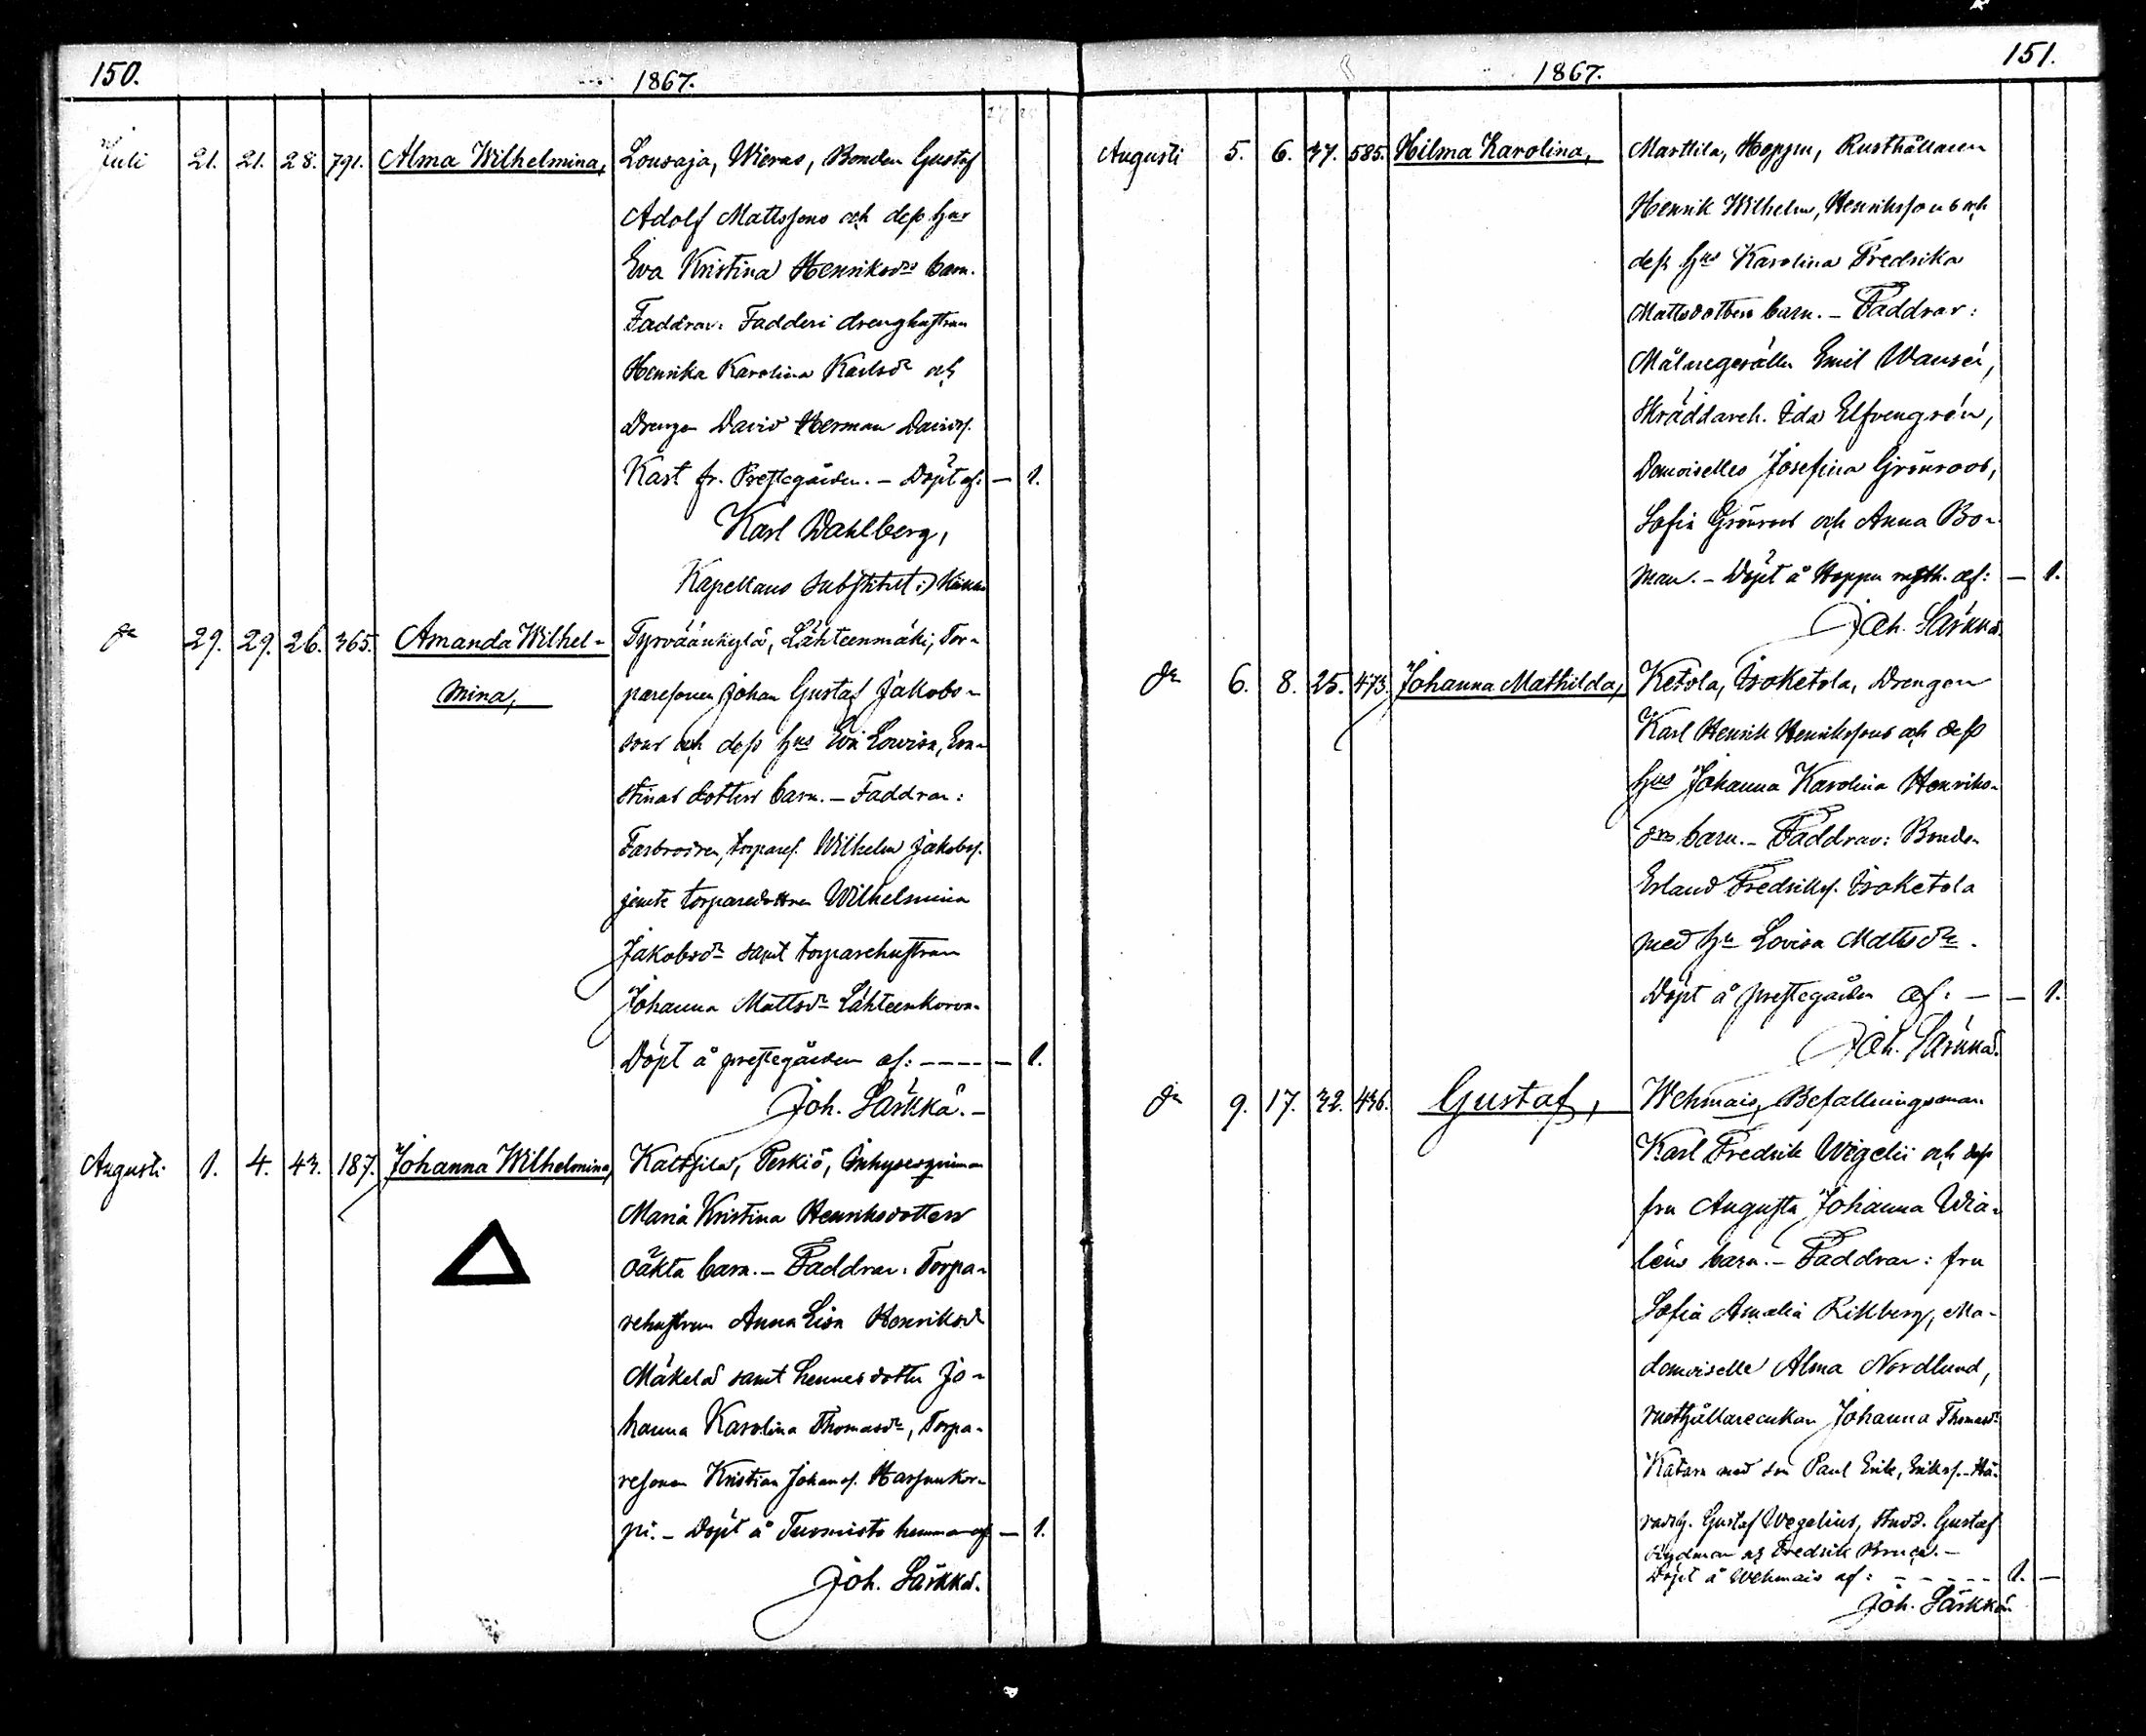 150.
1867.
Juli 21. 21. 28. 791. Alma Wilhelmina, Lousaja, Wieras, Bonden Gustaf
Adolf Matlssons och dess hus
Eva Kristina Henriksdrs barn.
Faddrar: Fadderi drenghustrun
Henrika Karolina Karlsdr och
Drengen David Herman Davids.
Kast fr. Prestegården. – Döpt af: – 1.
Karl Wahlberg,
Kapellans substitut i
dn 29. 29. 26. 365. Amanda Wilhel- Tyrväänkylä, Lähteenmäki, Tor-
mina, paresonen Johan Gustaf Jakobs-
sons och dess hus Eva Lovisa, Eva-
stinas dotters barn. – Faddrar:
Farbrodren, torpares. Wilhelm Jakobs.
jemte torparedottren Wilhelmina
Jakobsdr samt torparehustrun
Johanna Mattsdr Lähteenkorva-
Döpt å prestegården af: – – – – – 1.
Joh. Särkkä. –
Augusti 1. 4. 43. 187. Johanna Wilhelmina, Kaltsila, Perkiö, Inhysesqvinnan
Maria Kristina Henriksdotters
oäkta barn. – Faddrar: Torpa-
rehustrun Anna Lisa Henriksdr
Mäkelä samt hennes dotter Jo-
hanna Karolina Thomasdr, Torpa-
resonen Kristian Johans. Harjunkor-
pi. – Döpt å Tuomisto hemman af – 1.
Joh. Särkkä.
151.
1867.
Augusti 5. 6. 37. 585. Hilma Karolina, Marttila, Hoppu, Rusthållaren
Henrik Wilhelm, Henrikssons och
dess hus Karolina Fredrika
Mattsdotters barn. – Faddrar:
Målaregesällen Emil Wansén,
Skräddareh. Ida Elfvengrén,
Demoiselles Josefina Grönroos,
Sofia Grönroos och Anna Bo-
man. – Döpt å Hoppu rusth. af: – 1.
Joh. Särkkä.
dn 6. 8. 25. 473. Johanna Mathilda, Ketola, Isoketola, Drengen
Karl Henrik Henrikssons och dess
hus Johanna Karolina Henriks-
drs barn. – Faddrar: Bonden
Erland Fredriks. Isoketola
med hu Lovisa Mattsdr.
Döpt å prestegården af: – – 1.
Joh. Särkkä.
dn 9. 17. 32. 436. Gustaf, Wehmais, Befallningsman
Karl Fredrik Wegelii och dess
fru Augusta Johanna Wia-
léns barn. – Faddrar: fru
Sofia Amalia Rikberg, Ma-
demoiselle Alma Nordlund,
rusthållareenkan Johanna Thomasdr
Katara med son Paul Erik, Eriks. – Hä-
radsh. Gustaf Wegelius, Stud. Gustaf
och Fredrik Bruca. –
Döpt å Wehmais af: – – – – – 1. –
Joh. Särkkä